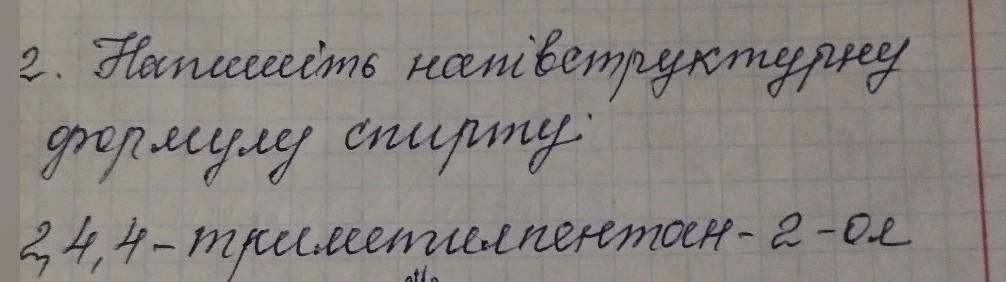 2. Напишіть напівструктурну
формулу спирту:
2,4,4-триметилпентан-2-ол